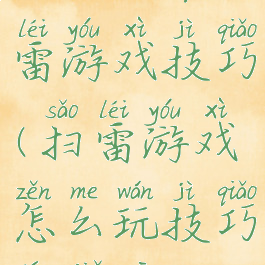 léi yóu xì jì qiǎo
雷游戏技巧
sǎo léi yóu xì
(扫雷游戏
zěn me wán jì qiǎo
怎么玩技巧